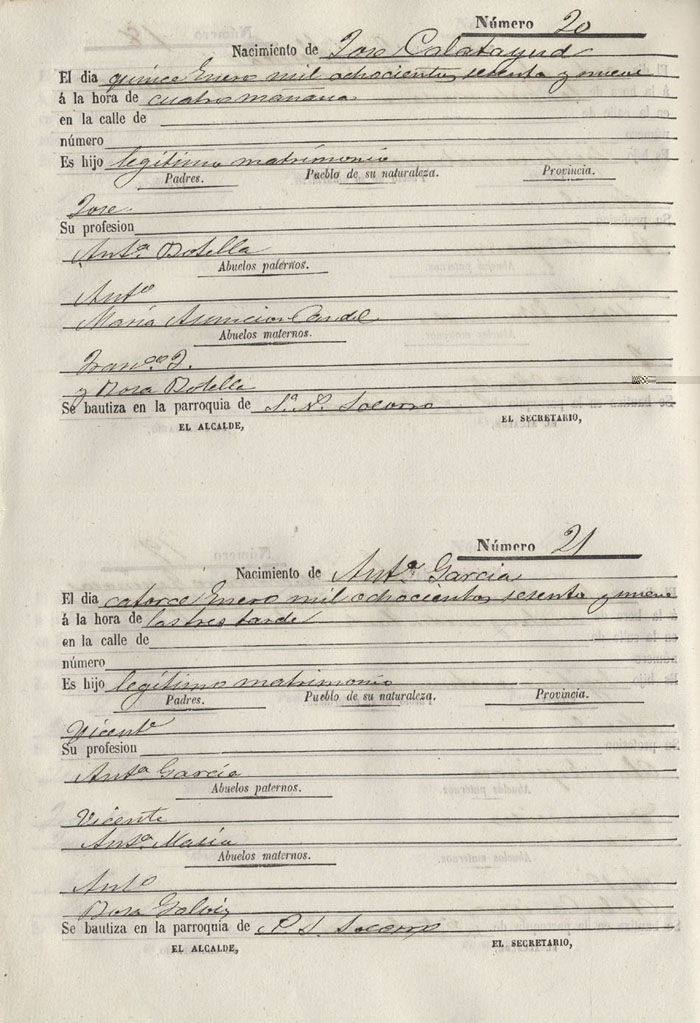 Número 20
Nacimiento de Jose Calatayud
El dia quince Enero mil ochocientos sesenta y nueve
á la hora de cuatro mañana
en la calle de
número
Es hijo legítimo matrimonio
Padres. Pueblo de su naturaleza. Provincia.
Jose
Su profesion
Antª Botella
Abuelos paternos.
Antº
María Asuncion Candel
Abuelos maternos.
Franco
y Rosa Botella
Se bautiza en la parroquia de Socorro
EL ALCALDE, EL SECRETARIO,
Número 21
Nacimiento de Antª Garcia
El dia catorce Enero mil ochocientos sesenta y nueve
á la hora de las tres tarde
en la calle de
número
Es hijo legítimo matrimonio
Padres. Pueblo de su naturaleza. Provincia.
Vicente
Su profesion
Antª Garcia
Abuelos paternos.
Vicente
Antª María
Abuelos maternos.
Antº
Rosa Galvis
Se bautiza en la parroquia de Socorro
EL ALCALDE, EL SECRETARIO,